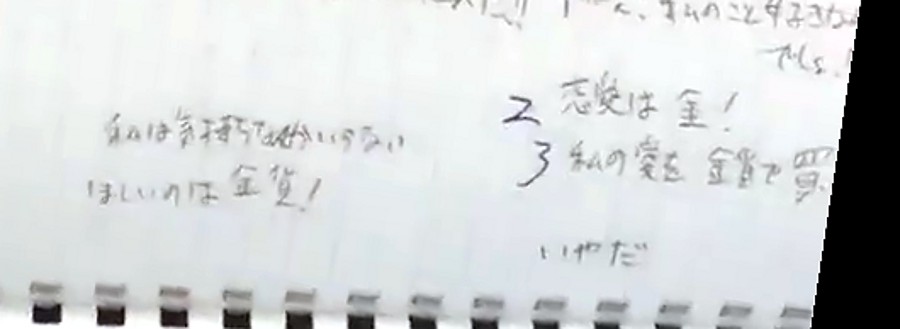 私のこと好きな
でしょ!
2 恋愛は金!
3 私の愛を金貨で買
いやだ
私は気持ちなんかいらない
ほしいのは金貨!